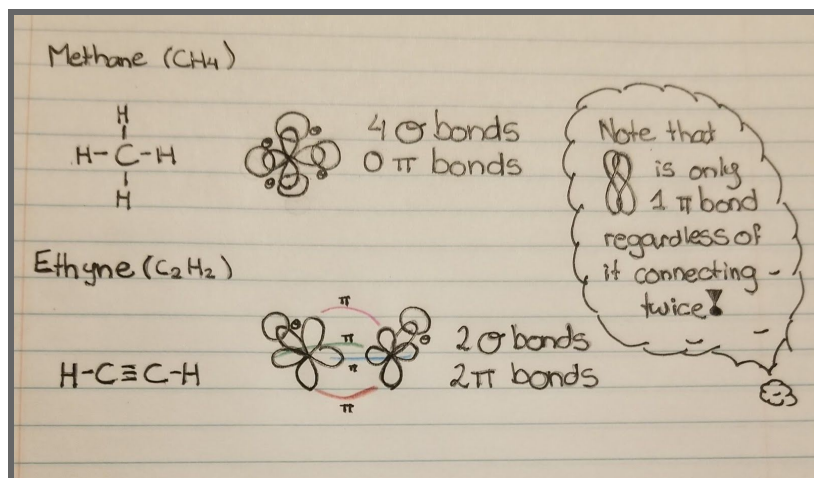 Methane (CH4)
H
H-C-H
H
4 σ bonds
0 π bonds
Note that
is only
1 π bond
regardless of
it connecting -
twice!
Ethyne (C2H2)
H-C≡C-H
π
π
π
π
2 σ bonds
2π bonds